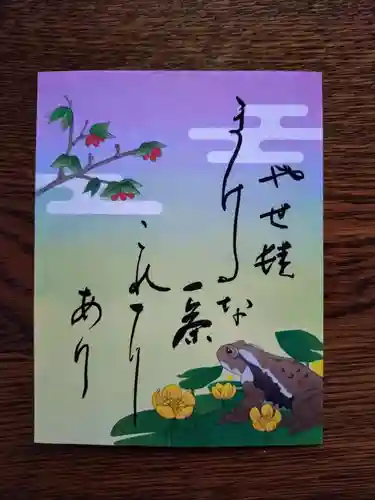 やせ蛙
まけるな
一茶
これに
あり